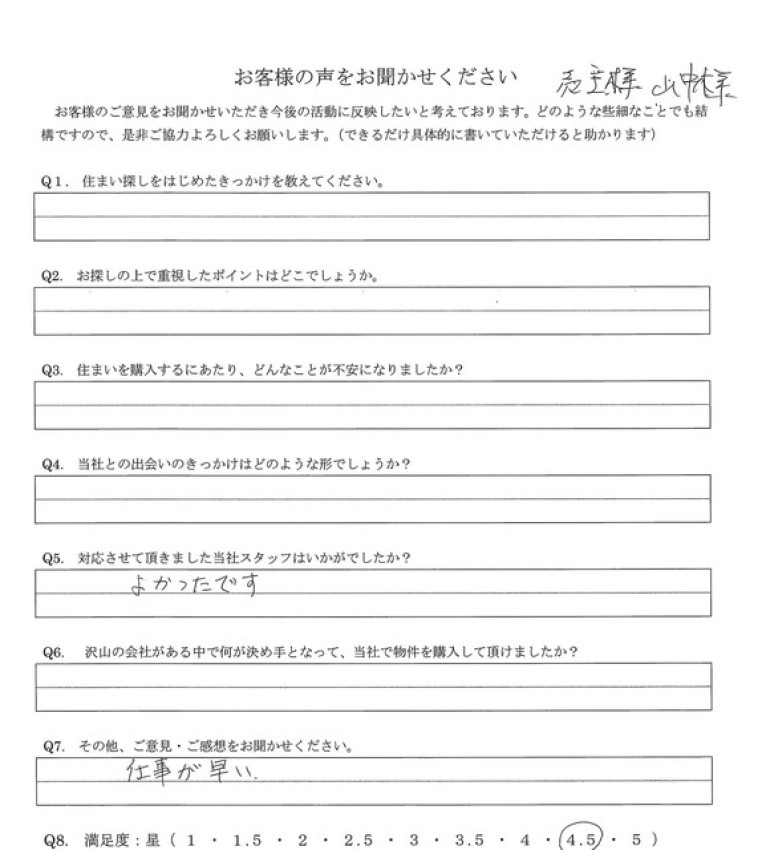 お客様の声をお聞かせください 売主様 山中様
お客様のご意見をお聞かせいただき今後の活動に反映したいと考えております。どのような些細なことでも結
構ですので、是非ご協力よろしくお願いします。（できるだけ具体的に書いていただけると助かります）
Q1. 住まい探しをはじめたきっかけを教えてください。
Q2. お探しの上で重視したポイントはどこでしょうか。
Q3. 住まいを購入するにあたり、どんなことが不安になりましたか？
Q4. 当社との出会いのきっかけはどのような形でしょうか？
Q5. 対応させて頂きました当社スタッフはいかがでしたか？
よかったです
Q6. 沢山の会社がある中で何が決め手となって、当社で物件を購入して頂けましたか？
Q7. その他、ご意見・ご感想をお聞かせください。
仕事が早い.
Q8. 満足度：星（ 1 ・ 1.5 ・ 2 ・ 2.5 ・ 3 ・ 3.5 ・ 4 ・ 4.5 ・ 5 ）